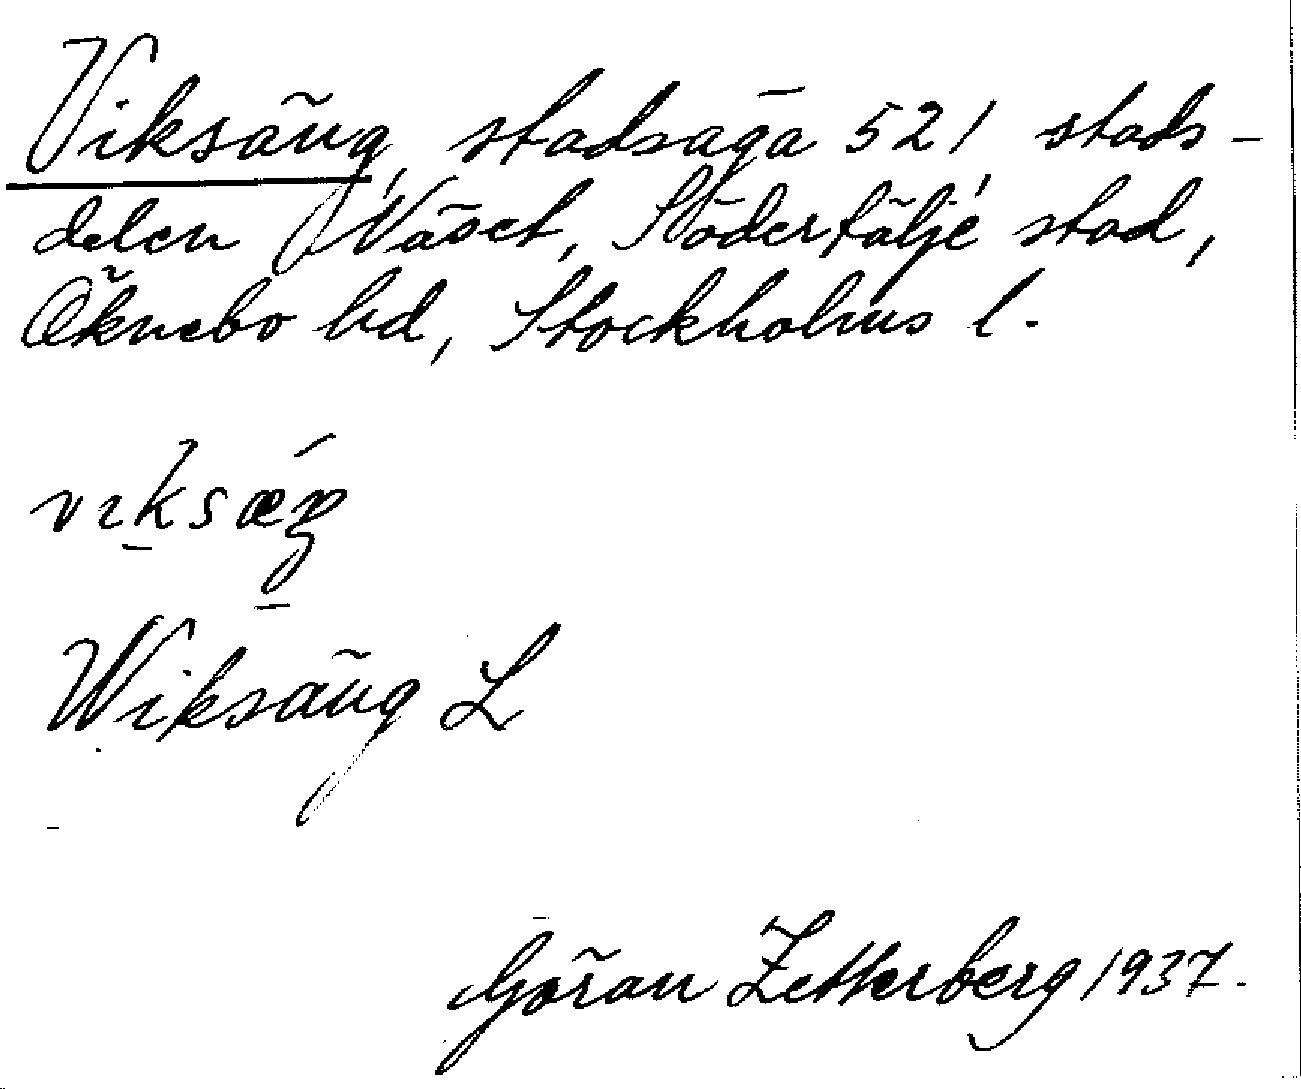 Viksäng, stadsäga 521 stads-
delen Näset, Södertälje stad,
Öknebo hd, Stockholms l.
vɪksǽŋ
Wiksäng L
Göran Zetterberg 1937.